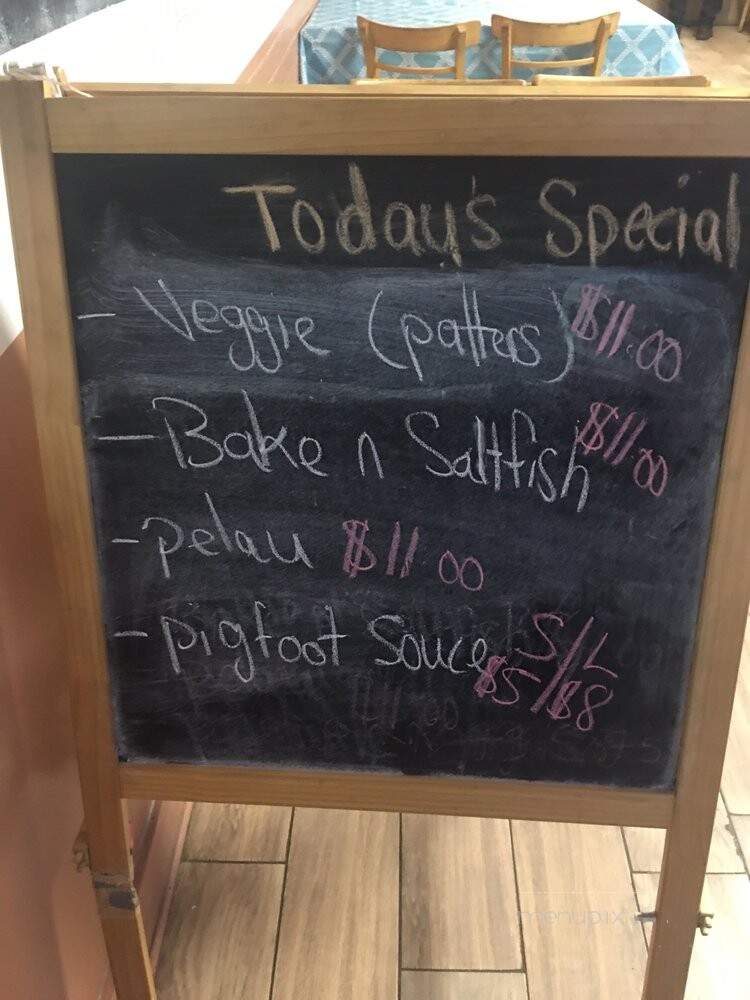 Today's Special
- Veggie (patters) $11.00
- Bake n Saltfish $11.00
- pelau $11.00
- pigfoot Souce S/L
$5/$8